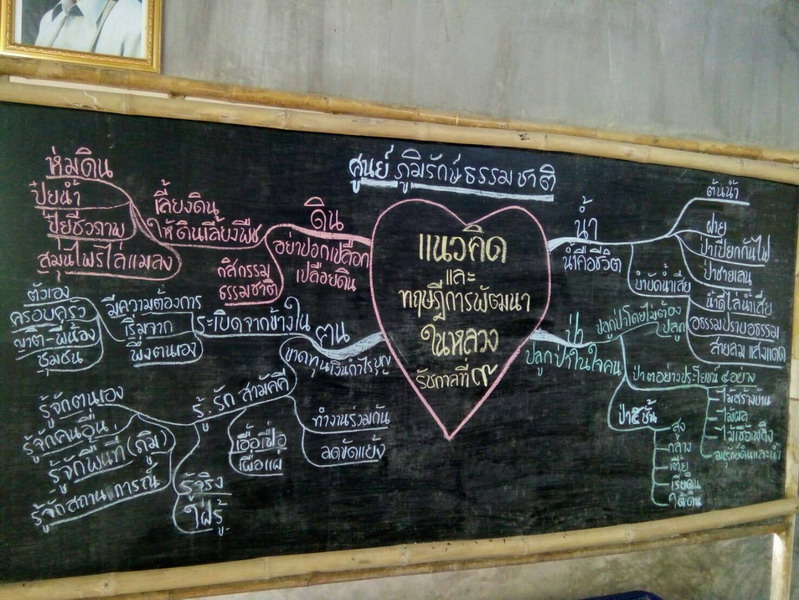 ศูนย์ภูมิรักษ์ธรรมชาติ
แนวคิด
และ
ทฤษฎีการพัฒนา
ในหลวง
รัชกาลที่ ๙
ดิน
อย่าปอกเปลือก
เปลือยดิน
เลี้ยงดิน
ให้ดินเลี้ยงพืช
กสิกรรม
ธรรมชาติ
ห่มดิน
ปุ๋ยน้ำ
ปุ๋ยชีวภาพ
สมุนไพรไล่แมลง
น้ำ
น้ำคือชีวิต
ต้นน้ำ
ฝาย
ป่าเปียกกันไฟ
ป่าชายเลน
บำบัดน้ำเสีย
น้ำดีไล่น้ำเสีย
อธรรมปราบอธรรม
สายลม แสงแดด
คน
ระเบิดจากข้างใน
มีความต้องการ
เริ่มจาก
พึ่งตนเอง
ตัวเอง
ครอบครัว
ญาติ-พี่น้อง
ชุมชน
ขาดทุน
รู้ รัก สามัคคี
ทำงานร่วมกัน
ลดขัดแย้ง
เอื้อเฟื้อ
เผื่อแผ่
รู้จริง
ใฝ่รู้
รู้จักตนเอง
รู้จักคนอื่น
รู้จักพื้นที่
รู้จักสถานการณ์
ป่า
ปลูกป่าในใจคน
ปลูกป่าโดยไม่ต้อง
ปลูก
ป่า ๓ อย่าง ประโยชน์ ๔ อย่าง
ไม้สร้างบ้าน
ไม้ผล
ไม้เชื้อเพลิง
อนุรักษ์ดินและน้ำ
ป่า ๕ ชั้น
สูง
กลาง
เตี้ย
เรี่ยดิน
ใต้ดิน